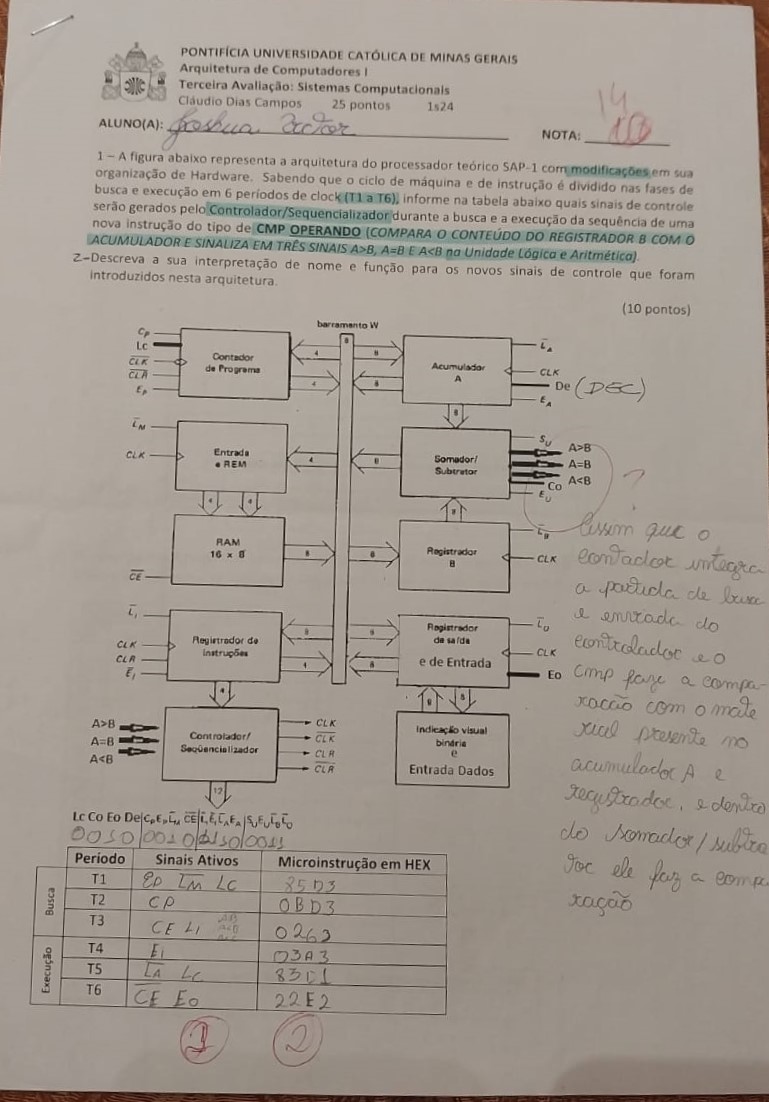 PONTIFÍCIA UNIVERSIDADE CATÓLICA DE MINAS GERAIS
Arquitetura de Computadores I
Terceira Avaliação: Sistemas Computacionais
Cláudio Dias Campos 25 pontos 1s24
ALUNO(A): Joshua Victor
NOTA:
14
10
1 – A figura abaixo representa a arquitetura do processador teórico SAP-1 com modificações em sua
organização de Hardware. Sabendo que o ciclo de máquina e de instrução é dividido nas fases de
busca e execução em 6 períodos de clock (T1 a T6), informe na tabela abaixo quais sinais de controle
serão gerados pelo Controlador/Sequencializador durante a busca e a execução da sequência de uma
nova instrução do tipo de CMP OPERANDO (COMPARA O CONTEÚDO DO REGISTRADOR B COM O
ACUMULADOR E SINALIZA EM TRÊS SINAIS A>B, A=B E A<B na Unidade Lógica e Aritmética).
2.–Descreva a sua interpretação de nome e função para os novos sinais de controle que foram
introduzidos nesta arquitetura.
(10 pontos)
barramento W
Cp
Lc
C̅L̅K̅
C̅L̅R̅
Ep
Contador
de Programa
4
4
8
8
8
Acumulador
A
L̅A
CLK
De (DEC)
EA
L̅M
CLK
Entrada
e REM
4
8
8
Somador/
Subtrator
SU
A>B
A=B
A<B
Co
EU
?
4
4
8
RAM
16 x 8
C̅E̅
8
8
Registrador
B
L̅B
CLK
L̅I
CLK
CLR
E̅I
Registrador de
instruções
8
4
8
8
Registrador
de saída
e de Entrada
L̅O
CLK
Eo
4
8
8
A>B
A=B
A<B
Controlador/
Seqüencializador
CLK
C̅L̅K̅
CLR
C̅L̅R̅
12
Indicação visual
binária
e
Entrada Dados
Assim que o
contador integra
a partida de busca
e enviada do
controlador e o
Cmp faze a compa-
ração com o mate
rial presente no
acumulador A e
registrador, e dentro
do somador/subtra
tor ele faz a compa
ração
Lc Co Eo De|CpEpL̅M C̅E̅|L̅IE̅IL̅AEA|SUEUL̅BL̅O
Período Sinais Ativos Microinstrução em HEX
Busca
T1 EP L̅M̅ LC 85D3
T2 CP 0BD3
T3 CE LI 0263
Execução
T4 EI 03A3
T5 L̅A̅ LC 83C1
T6 C̅E̅ EO 22E2
1
2